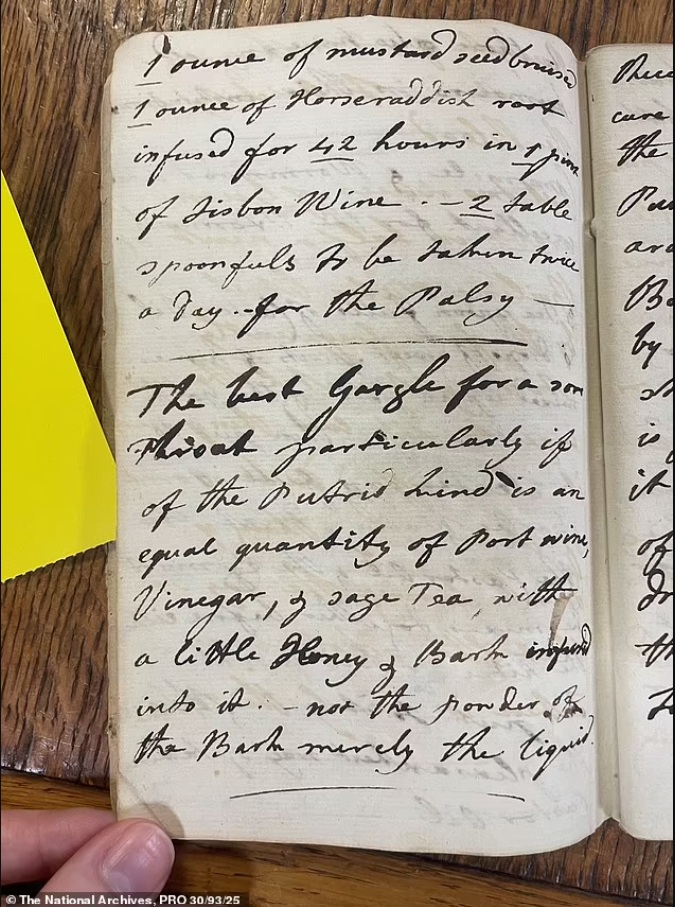 1 ounce of mustard seed bruised
1 ounce of Horseraddish root
infused for 42 hours in 1 pint
of Lisbon Wine . - 2 table
spoonfuls to be taken twice
a Day. - for the Palsy —
The best Gargle for a sore
Throat particularly if
of the Putrid kind is an
equal quantity of Port wine,
Vinegar, & sage Tea, with
a little Honey & Bark infused
into it. - not the powder of
the Bark merely the liquid.
cure
the
by
is
it
of
© The National Archives, PRO 30/93/25